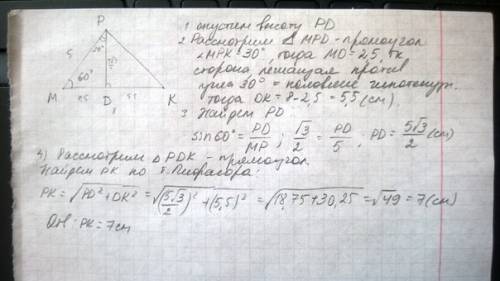 P
5
30°
60°
M 2,5 D 5,5 K
1 опустим высоту PD
2. Рассмотрим △ MPD - прямоугол
∠MPK = 30°, тогда MD = 2,5, тк
сторона лежащая против
угла 30° = половине гипотенузы.
тогда DK = 8 - 2,5 = 5,5 (см).
3. Найдем PD:
sin 60° = PD/MP; √3/2 = PD/5, PD = 5√3/2 (см)
4) Рассмотрим △ PDK - прямоугол
Найдем PK по т. Пифагора:
PK = √(PD² + DK²) = √((5√3/2)² + (5,5)²) = √(18,75 + 30,25) = √49 = 7 (см)
Отв: PK = 7 см